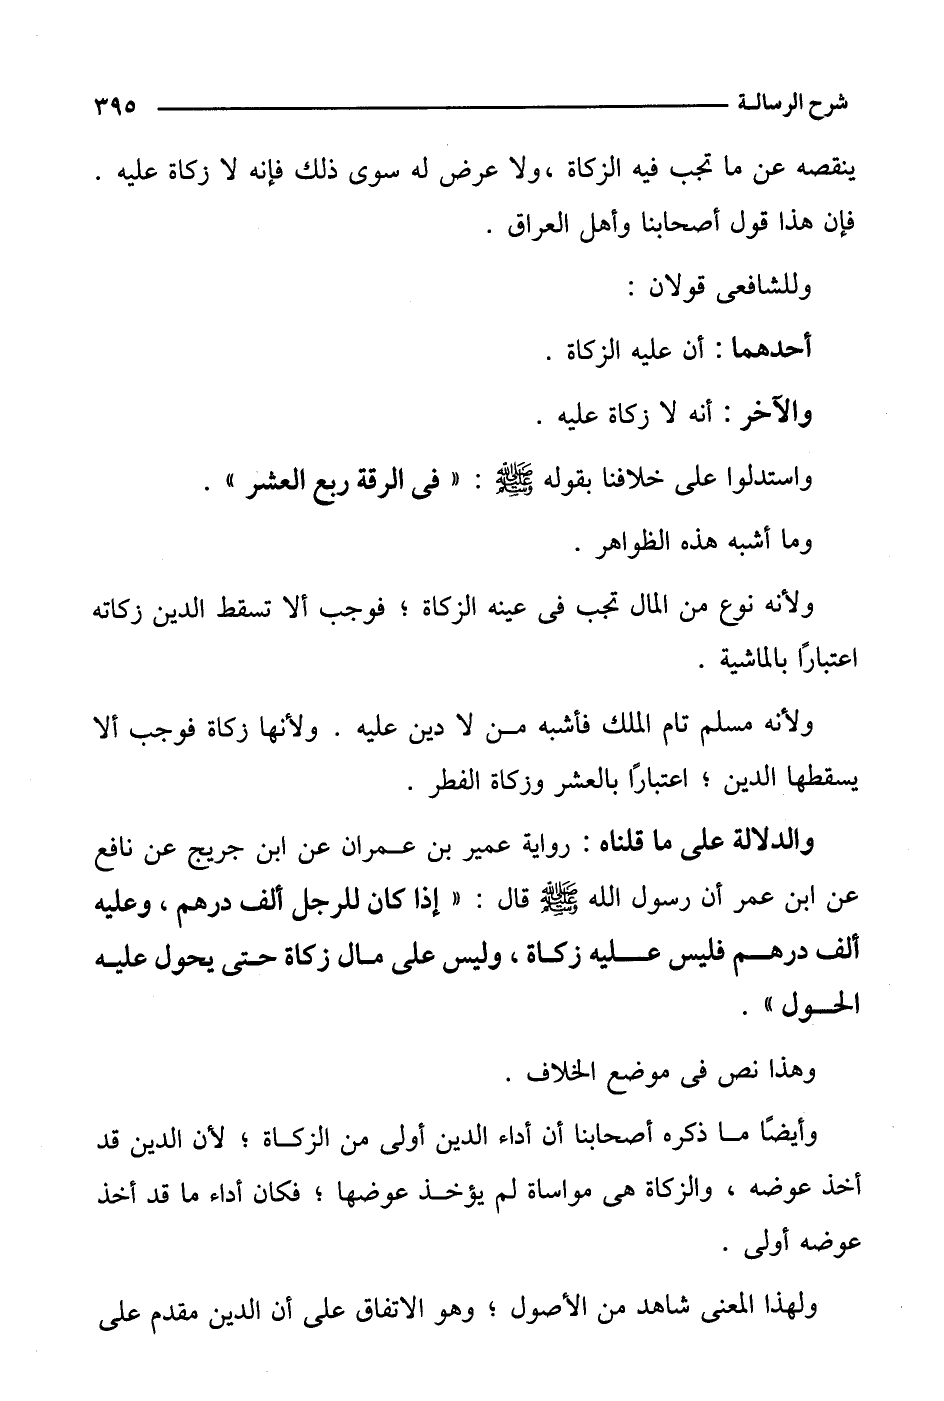 شرح الرسالة ٣٩٥
ينقصه عن ما تجب فيه الزكاة ، ولا عرض له سوى ذلك فإنه لا زكاة عليه .
فإن هذا قول أصحابنا وأهل العراق .
وللشافعى قولان :
أحدهما : أن عليه الزكاة .
والآخر : أنه لا زكاة عليه .
واستدلوا على خلافنا بقوله ﷺ : « فى الرقة ربع العشر » .
وما أشبه هذه الظواهر .
ولأنه نوع من المال تجب فى عينه الزكاة ؛ فوجب ألا تسقط الدين زكاته
اعتبارًا بالماشية .
ولأنه مسلم تام الملك فأشبه مـن لا دين عليه . ولأنها زكاة فوجب ألا
يسقطها الدين ؛ اعتبارًا بالعشر وزكاة الفطر .
والدلالة على ما قلناه : رواية عمير بن عـمران عن ابن جريج عن نافع
عن ابن عمر أن رسول الله ﷺ قال : « إذا كان للرجل ألف درهم ، وعليه
ألف درهـم فليس عـليه زكـاة ، وليس على مـال زكاة حـتى يحول عليـه
الحـول » .
وهذا نص فى موضع الخلاف .
وأيضًا مـا ذكره أصحابنا أن أداء الدين أولى من الزكـاة ؛ لأن الدين قد
أخذ عوضه ، والزكاة هى مواساة لم يؤخـذ عوضها ؛ فكان أداء ما قد أخذ
عوضه أولى .
ولهذا المعنى شاهد من الأصول ؛ وهو الاتفاق على أن الدين مقدم على